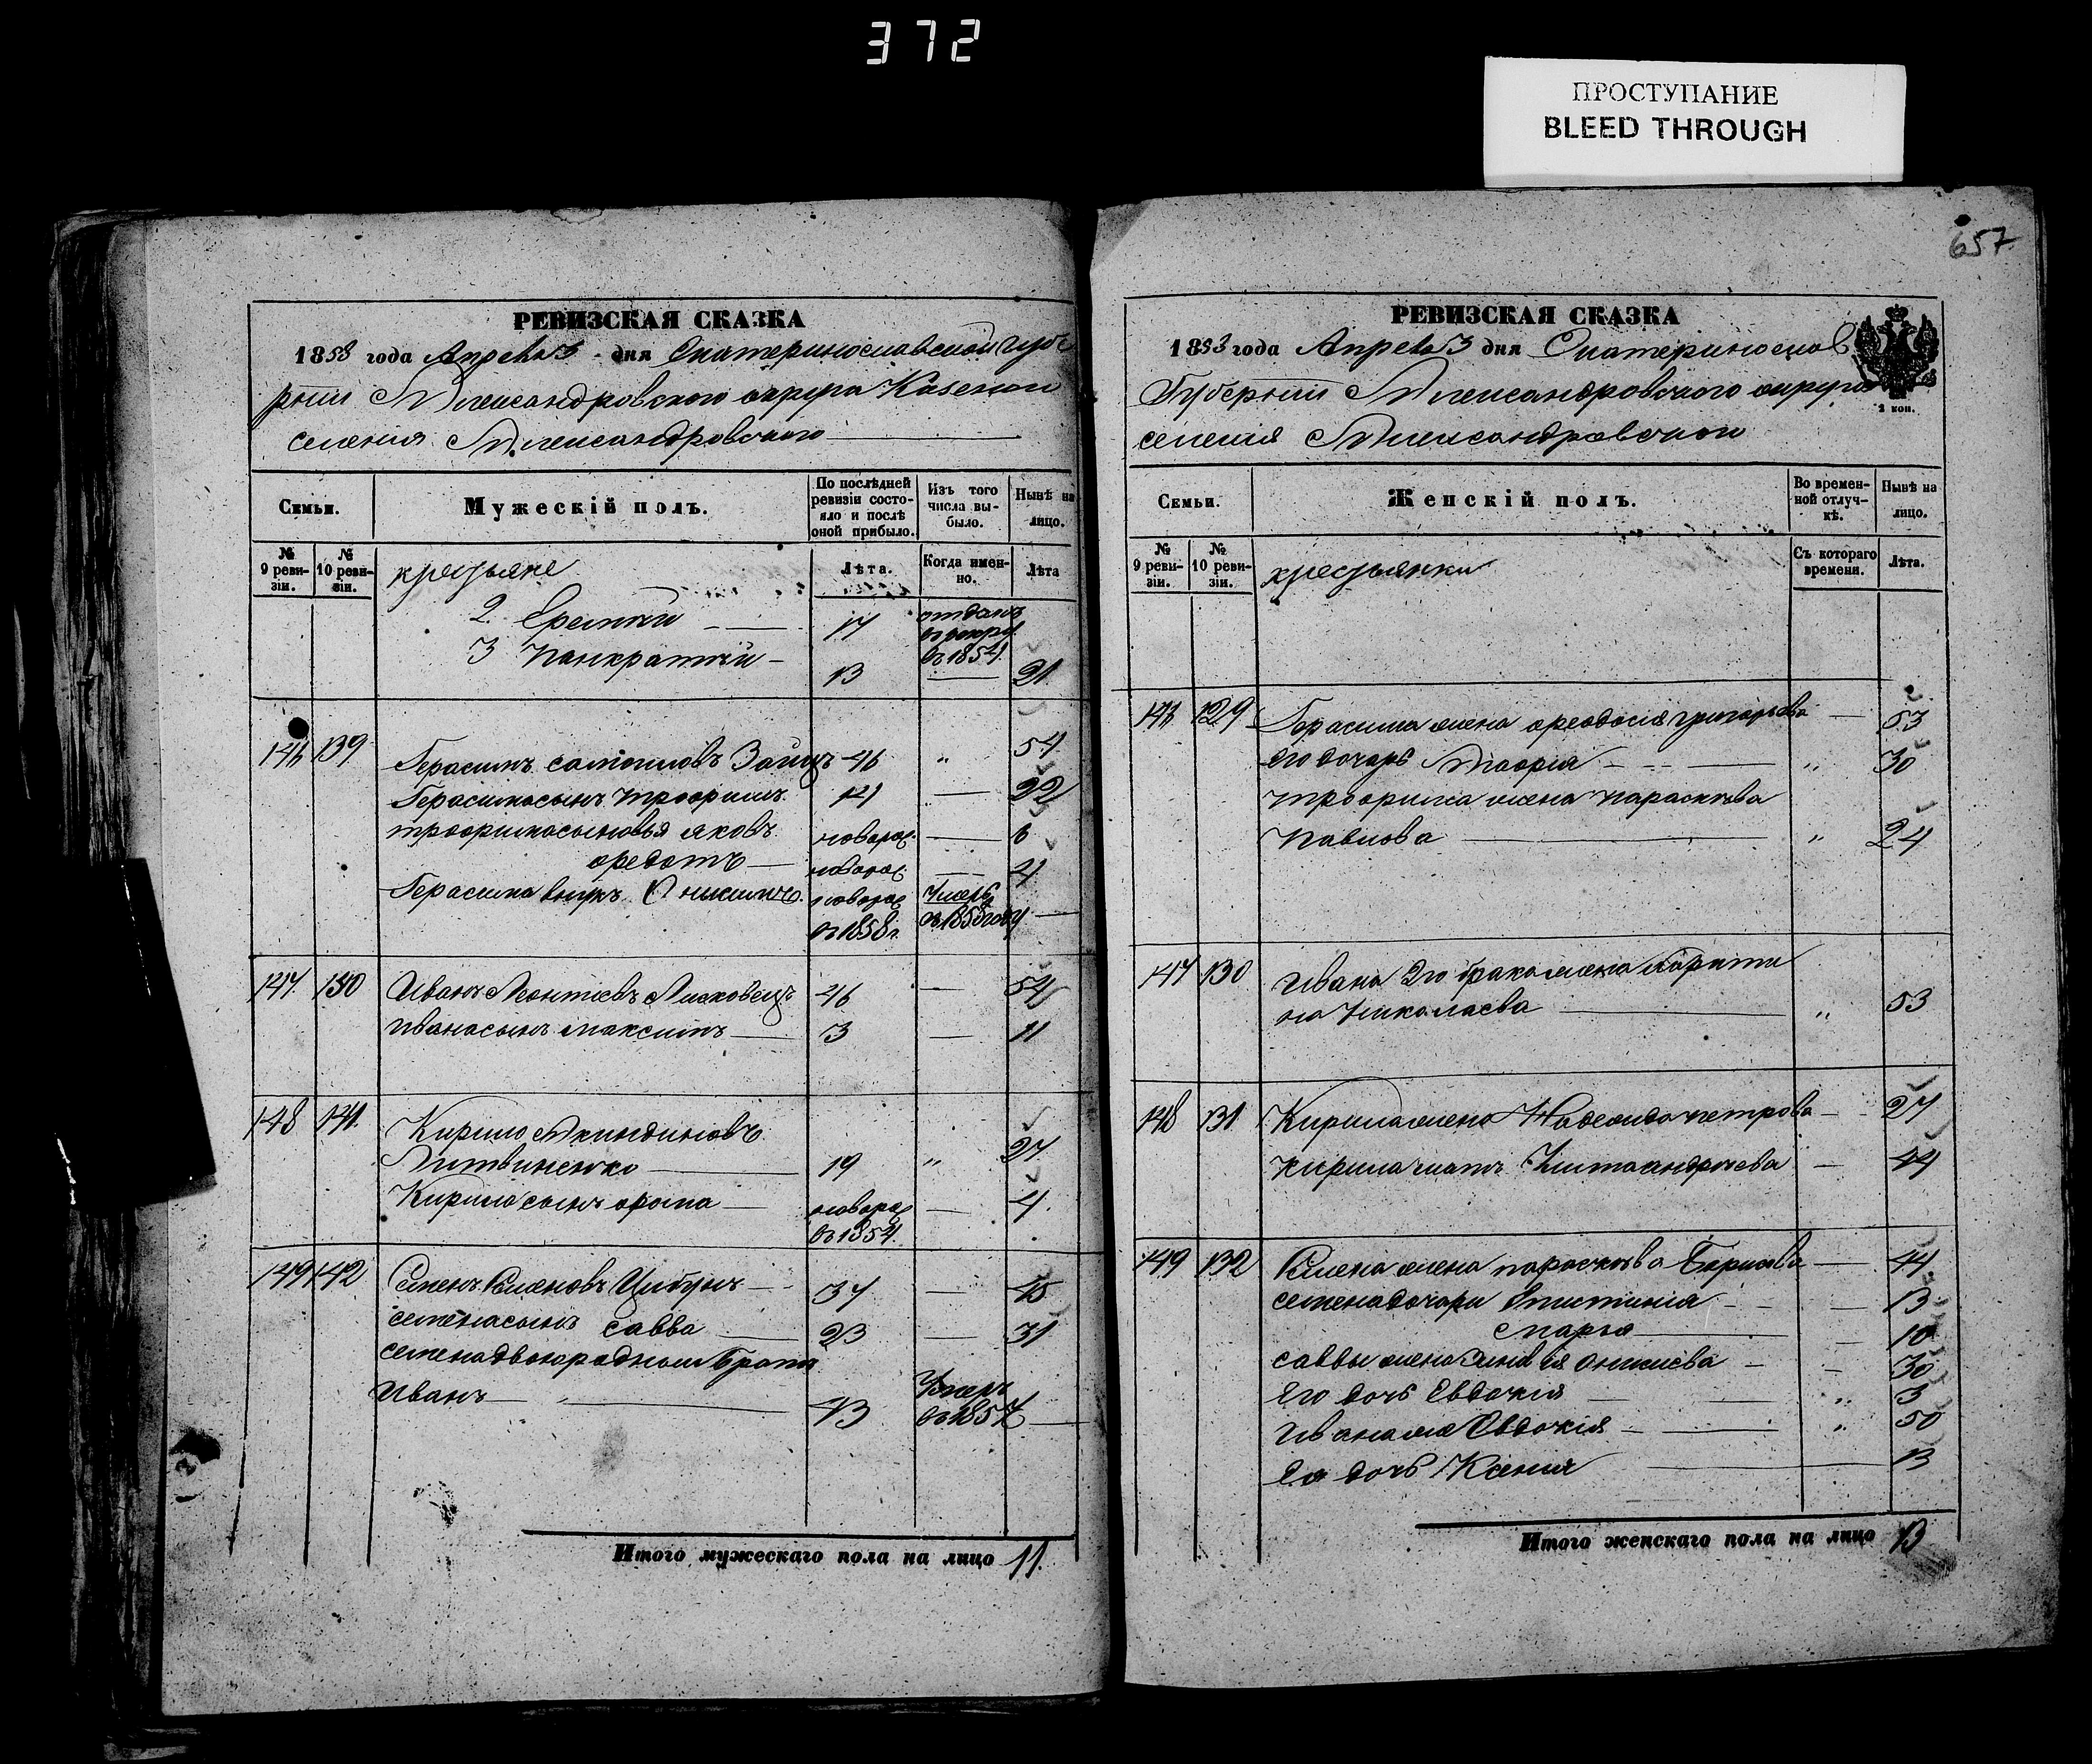 372
ПРОСТУПАНИЕ
BLEED THROUGH
657
РЕВИЗСКАЯ СКАЗКА
1858 года Апреля 3 дня Екатеринославской губе
рнии Александровского округа Казенного
селения Александровского
Семьи.
Мужескій полъ.
По послѣдней ревизіи состояло и послѣ оной прибыло.
Изъ того числа выбыло.
Нынѣ на лицо.
№ 9 ревизіи.
№ 10 ревизіи.
крестьяне
Лѣта.
Когда именно.
Лѣта
2. Еремѣй 17 отданъ в рекру. въ 1854
3 Панкратий 13 — 21
146 139 Герасимъ Самойловъ Заицъ 46 " 54
Герасима сынъ Трофимъ 14 — 22
Трофима сыновья Яковъ новорож. — 6
Федотъ новорож. — 4
Герасима внукъ Онисимъ новорож въ 1858 г. Умеръ въ 1858 году —
147 130 Иванъ Леонтиевъ Лисковецъ 46 — 54
Ивана сынъ Максимъ 3 — 11
148 141. Кирило Акиндиновъ
Литвиненко 19 " 27
Кирила сынъ Фома новорож въ 1854 — 4
149 142 Семенъ Семеновъ Цыбунъ 37 — 45
Семена сынъ Савва 23 — 31
Семена двоюродный братъ
Иванъ 43 Умеръ въ 1857 —
Итого мужескаго пола на лицо 11.
РЕВИЗСКАЯ СКАЗКА
1858 года Апреля 3 дня Екатеринослав
Губернии Александровского округа
селения Александровского
2 коп.
Семьи.
Женскій полъ.
Во временной отлучкѣ.
Нынѣ на лицо.
№ 9 ревизіи.
№ 10 ревизіи.
крестьянки
Съ котораго времени.
Лѣта.
146 129 Герасима жена Феодосия Григорьева — 53
Его дочерь " 30
Трофима жена Параскева
Павлова " 24
147 130 Ивана 2го брака жена Марити
на Николаева " 53
148 131 Кирила жена Надежда Петрова — 27
Кирила мать Андреева — 44
149 132 Семена жена Параскева Борисова — 44
Семена дочери — 13
Марья — 10
Саввы жена Зиновия — 30
Его дочь Евдокия " 3
Ивана же Евдокия " 50
Ея дочь Ксения 13
Итого женскаго пола на лицо 13